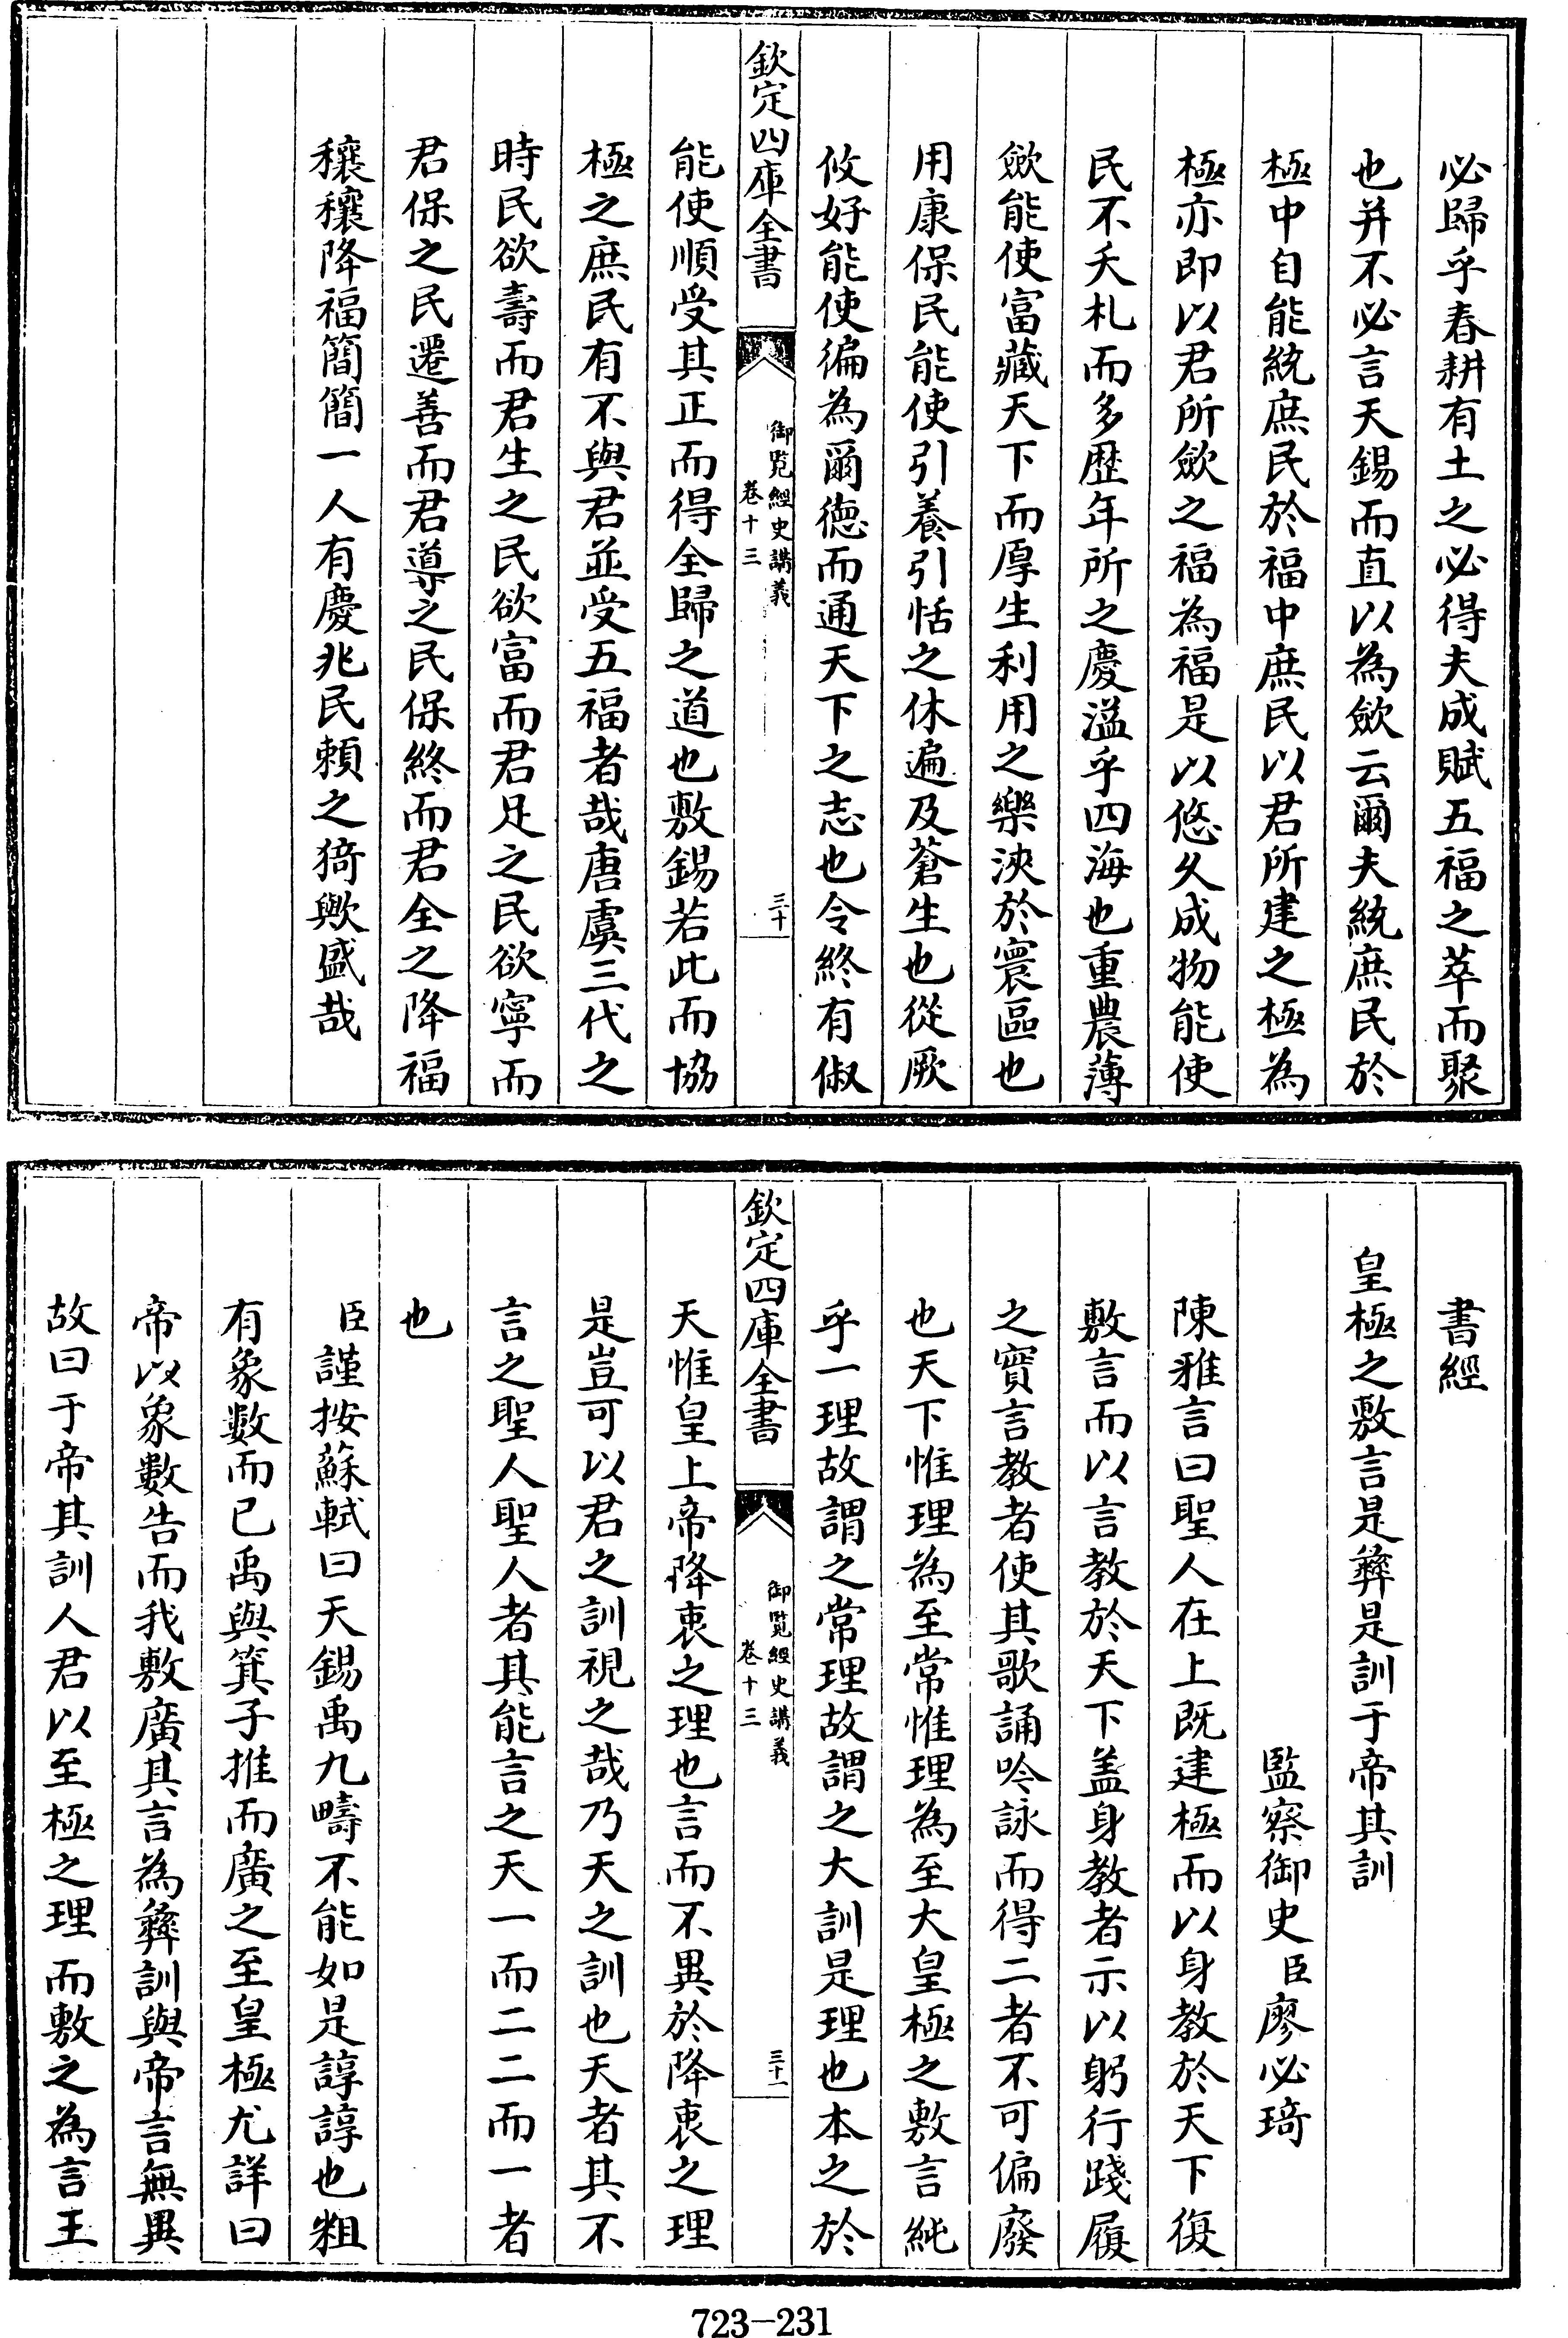 必歸乎春耕有土之必得夫成賦五福之萃而聚
也并不必言天錫而直以為歛云爾夫統庶民於
極中自能統庶民於福中庶民以君所建之極為
極亦即以君所歛之福為福是以悠久成物能使
民不夭札而多歴年所之慶溢乎四海也重農薄
歛能使富藏天下而厚生利用之樂浹於寰區也
用康保民能使引養引恬之休遍及蒼生也從厥
攸好能使徧為爾德而通天下之志也令終有俶
欽定四庫全書
御覽經史講義
卷十三
三十
能使順受其正而得全歸之道也敷錫若此而協
極之庶民有不與君並受五福者哉唐虞三代之
時民欲壽而君生之民欲富而君足之民欲寧而
君保之民遷善而君導之民保終而君全之降福
穰穰降福簡簡一人有慶兆民賴之猗歟盛哉
書經
皇極之敷言是彞是訓于帝其訓
監察御史臣廖必琦
陳雅言曰聖人在上既建極而以身教於天下復
敷言而以言教於天下盖身教者示以躬行踐履
之實言教者使其歌誦吟詠而得二者不可偏廢
也天下惟理為至常惟理為至大皇極之敷言純
乎一理故謂之常理故謂之大訓是理也本之於
欽定四庫全書
御覽經史講義
卷十三
三十一
天惟皇上帝降衷之理也言而不異於降衷之理
是豈可以君之訓視之哉乃天之訓也天者其不
言之聖人聖人者其能言之天一而二二而一者
也
臣謹按蘇軾曰天錫禹九疇不能如是諄諄也粗
有象數而已禹與箕子推而廣之至皇極尤詳曰
帝以象數告而我敷廣其言為彞訓與帝言無異
故曰于帝其訓人君以至極之理而敷之為言王
723-231